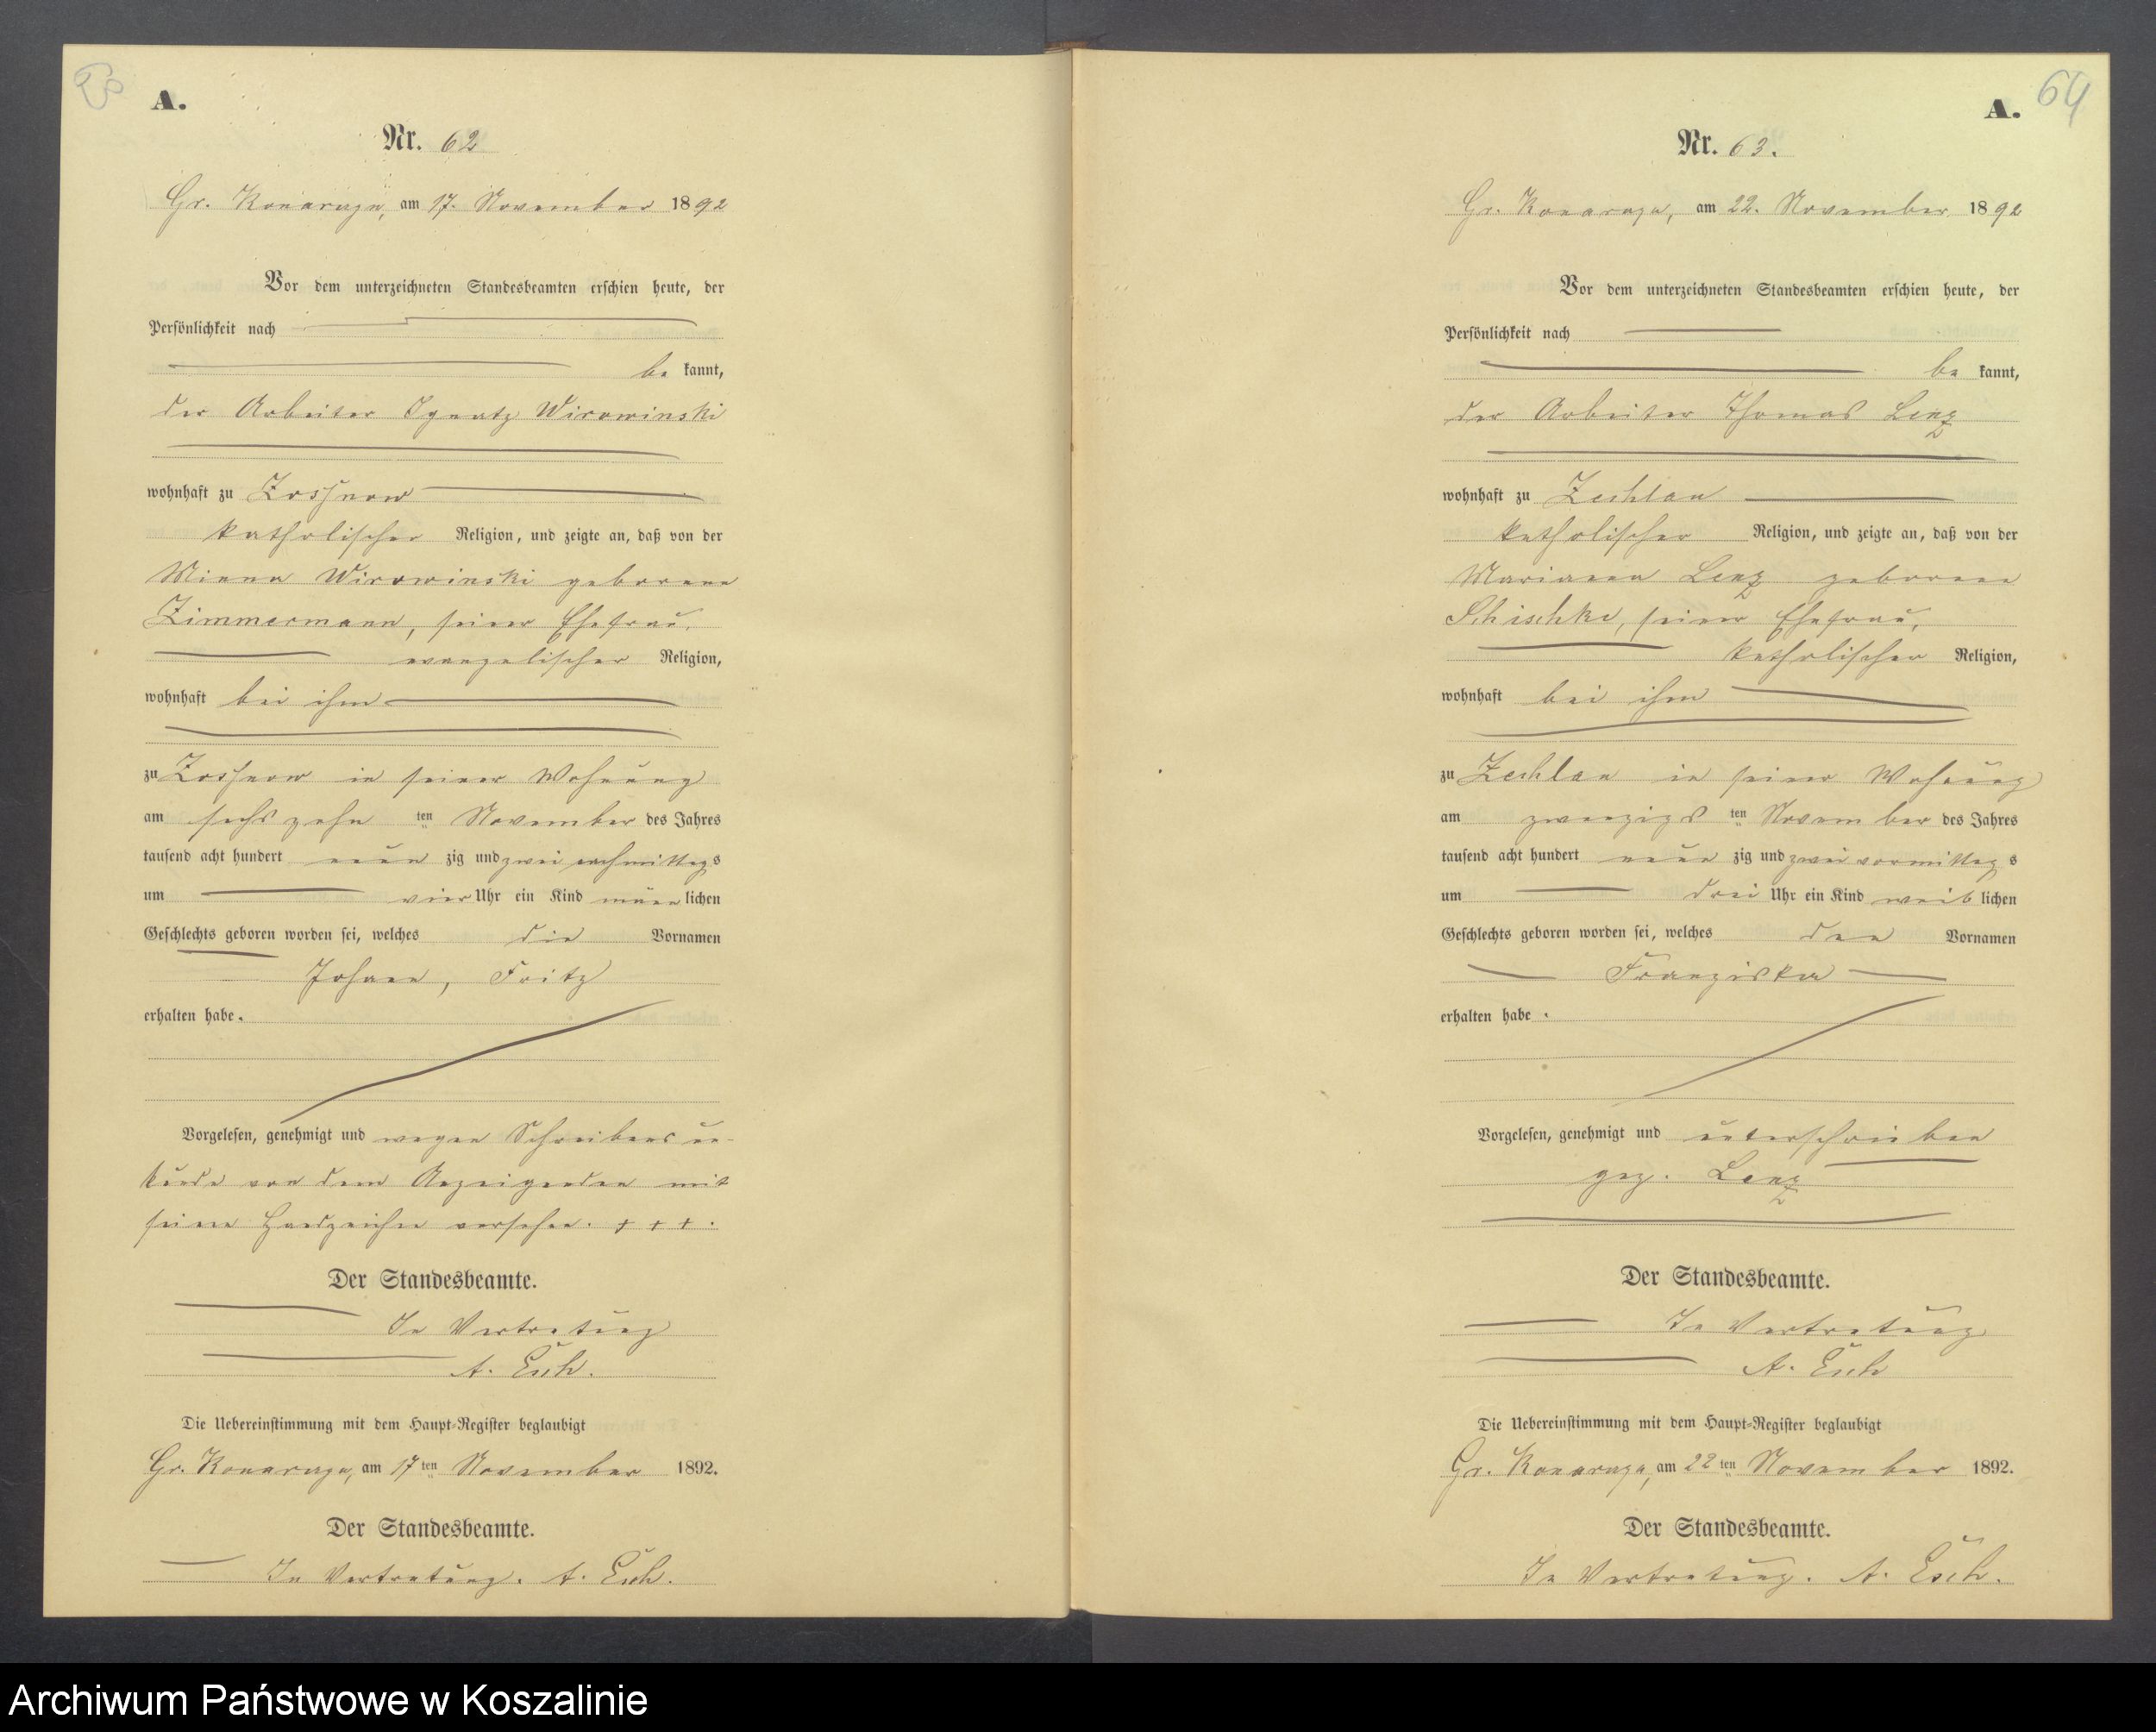 A.
Nr. 62
Gr. Konarczyn, am 17. November 1892
Vor dem unterzeichneten Standesbeamten erschien heute, der
Persönlichkeit nach
be kannt,
der Arbeiter Ignatz Wirowinski
wohnhaft zu Zossnow
katholischer Religion, und zeigte an, daß von der
Minna Wirowinski geborene
Zimmermann, seiner Ehefrau,
evangelischer Religion,
wohnhaft bei ihm
zu Zossnow in seiner Wohnung
am sechszehn ten November des Jahres
tausend acht hundert neun zig und zwei nachmittags
um vier Uhr ein Kind männ lichen
Geschlechts geboren worden sei, welches die Vornamen
Johann, Fritz
erhalten habe.
Vorgelesen, genehmigt und wegen Schreibensun-
kunde von dem Anzeigenden mit
seinem Handzeichen versehen. + + + .
Der Standesbeamte.
In Vertretung
A. Esch.
Die Uebereinstimmung mit dem Haupt-Register beglaubigt
Gr. Konarczyn, am 17 ten November 1892.
Der Standesbeamte.
In Vertretung. A. Esch.
64
A.
Nr. 63.
Gr. Konarczyn, am 22. November 1892
Vor dem unterzeichneten Standesbeamten erschien heute, der
Persönlichkeit nach
be kannt,
der Arbeiter Thomas Lenz
wohnhaft zu Zechlau
katholischer Religion, und zeigte an, daß von der
Marianna Lenz geborene
Schischke, seiner Ehefrau,
katholischer Religion,
wohnhaft bei ihm
zu Zechlau in seiner Wohnung
am zwanzigs ten November des Jahres
tausend acht hundert neun zig und zwei vormittags
um drei Uhr ein Kind weib lichen
Geschlechts geboren worden sei, welches den Vornamen
Franziska
erhalten habe.
Vorgelesen, genehmigt und unterschrieben
gez. Lenz
Der Standesbeamte.
In Vertretung
A. Esch
Die Uebereinstimmung mit dem Haupt-Register beglaubigt
Gr. Konarczyn, am 22 ten November 1892.
Der Standesbeamte.
In Vertretung. A. Esch.
Archiwum Państwowe w Koszalinie